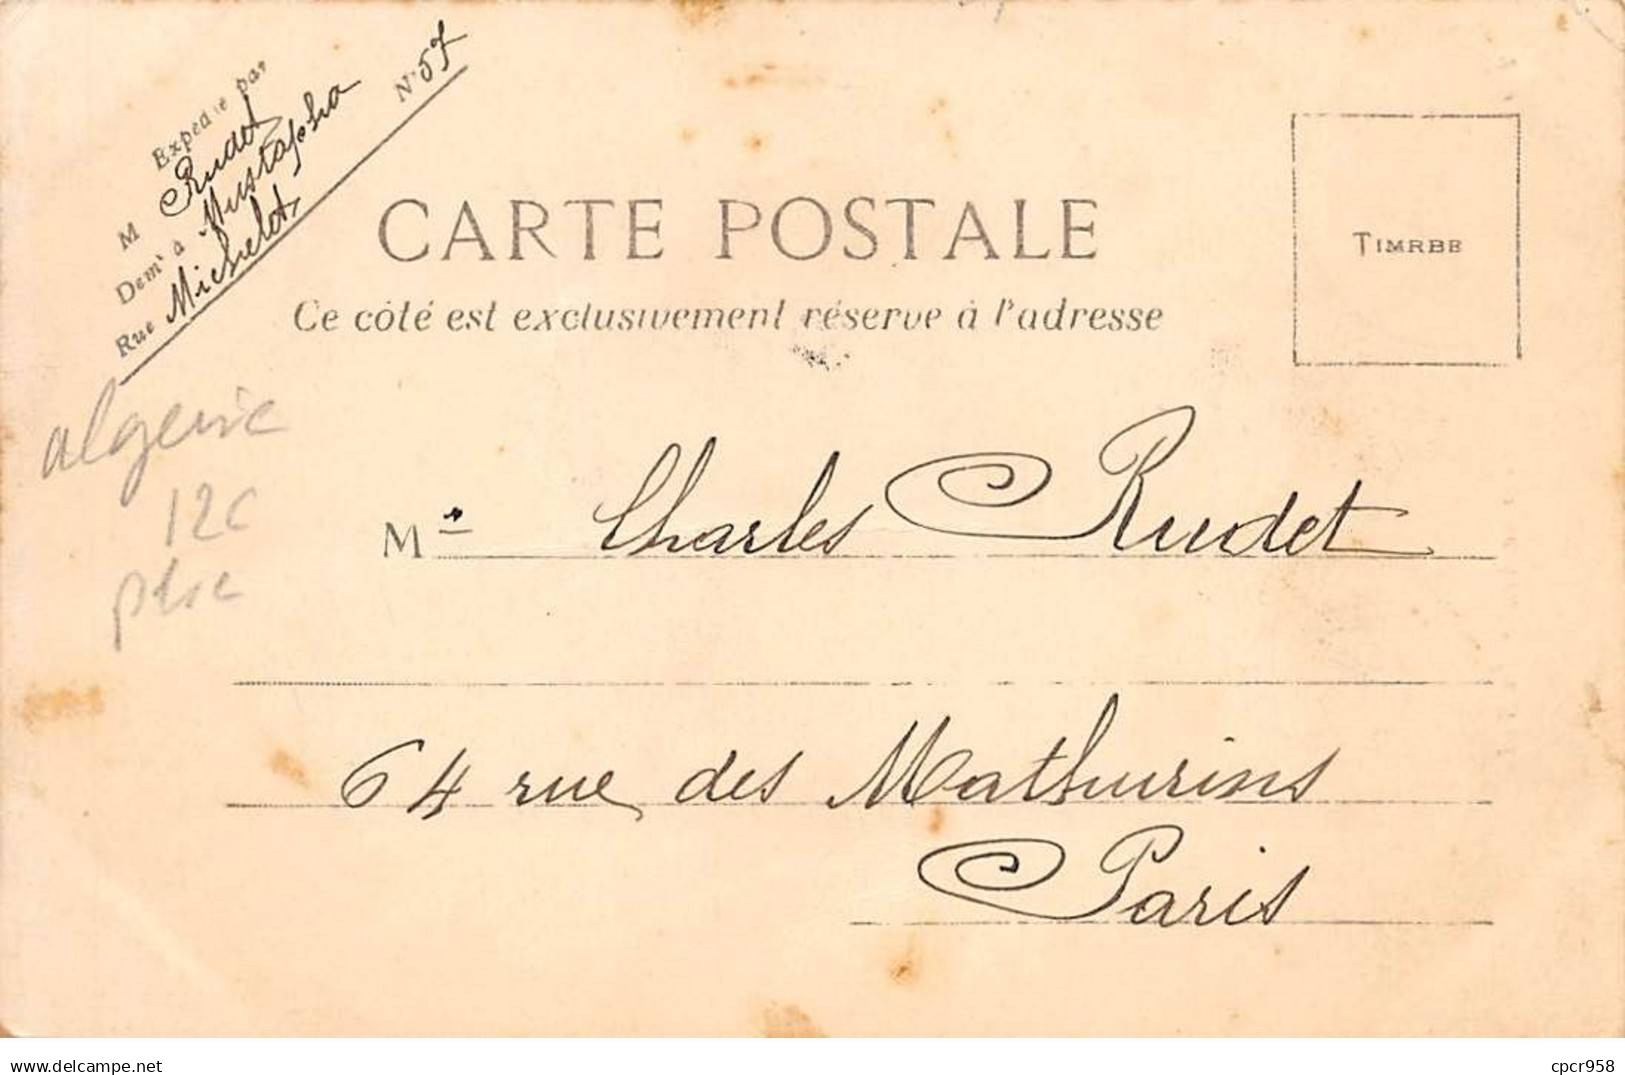 Expedié par
M Rudet
Demt à Mustapha
Rue Michelet, No 57
CARTE POSTALE
TIMRBE
Ce côté est exclusivement réservé à l'adresse
algerie
12c
Mr Charles Rudet
64 rue des Mathurins
Paris
delcampe.net
cpcr958